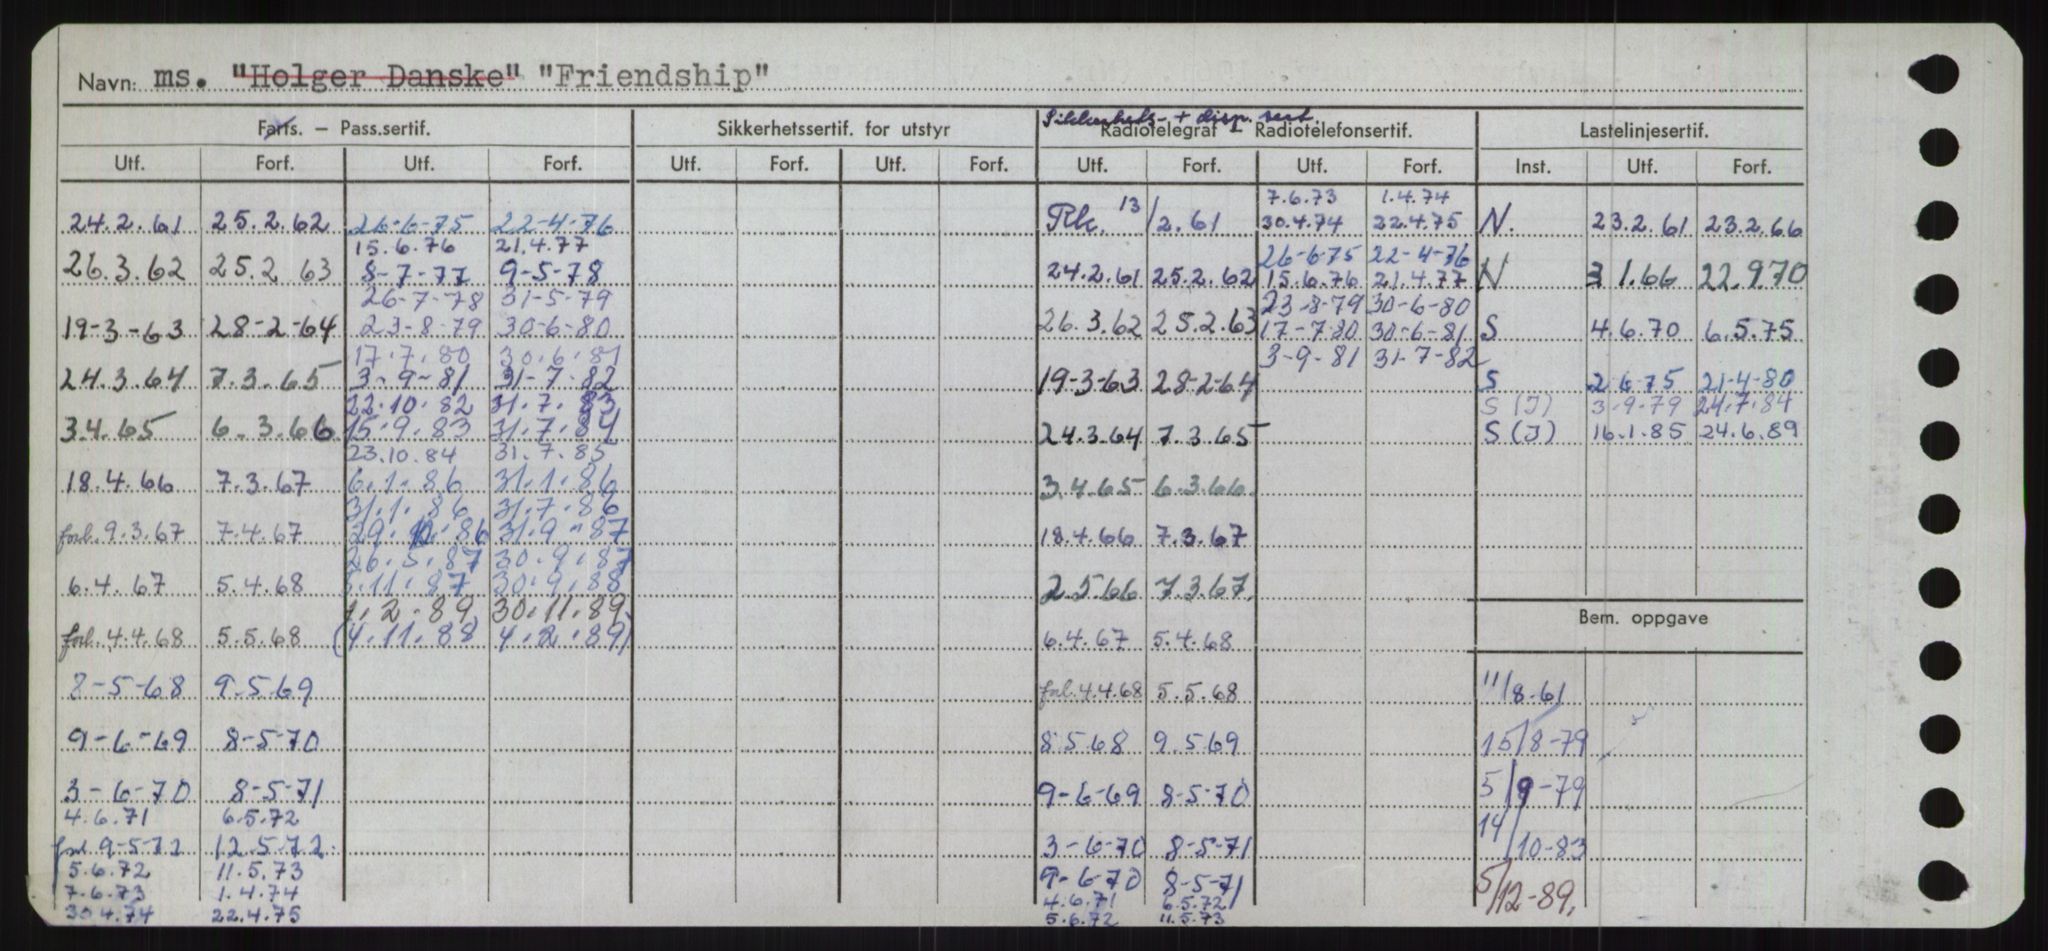 Navn: ms. "Holger Danske" "Friendship"
Farts. – Pass.sertif.
Utf. Forf. Utf. Forf.
24.2.61 25.2.62 26-6-75 22-4-76
15.6.76 21.4.77
26.3.62 25.2 63 8-7-77 9-5-78
26-7-78 31-5-79
19-3-63 28-2-64 23-8-79 30-6-80
17.7.80 30.6.81
24.3.64 7.3.65 3-9-81 31-7-82
22.10.82 31.7.83
3.4.65 6.3.66 15.9.83 31.7.84
23.10.84 31.7.85
18.4.66 7.3.67 6.1.86 31.1.86
31.1.86 31.7.86
forl. 9.3.67 7.4.67 29.10.86 31.9-87
26.5.87 30.9.87
6.4.67 5.4.68 5.11.87 30.9.88
1.2.89 30.11.89
forl. 4.4.68 5.5.68 (4.11.88 4.2.89)
8-5-68 9.5.69
9-6-69 8-5-70
3-6-70 8-5-71
4.6.71 6.5.72
forl 9-5-72 12.5.72
5.6.72 11.5.73
7.6.73 1.4.74
30.4.74 22.4.75
Sikkerhetssertif. for utstyr
Utf. Forf. Utf. Forf.
Sikkerhets- + disp. sert.
Radiotelegraf – Radiotelefonsertif.
Utf. Forf. Utf. Forf.
7.6.73 1.4.74
Rk. 13/2.61 30.4.74 22.4.75
26-6-75 22-4-76
24.2.61 25.2.62 15.6.76 21.4.77
23-8-79 30-6-80
26.3.62 25.2.63 17-7-80 30-6-81
3-9-81 31-7-82
19-3-63 28-2-64
24.3.64 7.3.65
3.4.65 6.3.66
18.4.66 7.3.67
2.5.66 7.3.67
6.4.67 5.4.68
forl. 4.4.68 5.5.68
8.5.68 9.5.69
9-6-69 8-5-70
3-6-70 8-5-71
9-6-70 8-5-71
4.6.71 6.5.72
5.6.72 11.5.73
Lastelinjesertif.
Inst. Utf. Forf.
N. 23.2.61 23.2.66
N 3 1.66 22.970
S 4.6.70 6.5.75
S 2.6.75 21-4-80
S (J) 3.9.79 24.7.84
S (J) 16.1.85 24.6.89
Bem. oppgave
11/8-61
15/8-79
5/9-79
14/10-83
5/12-89.